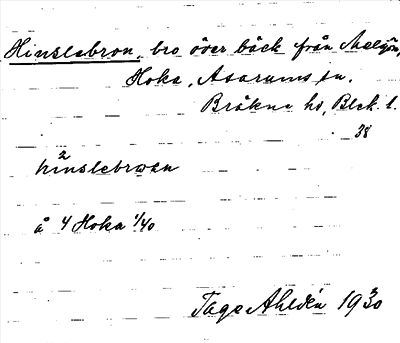 Hinslebron, bro över bäck från
Hoka, Asarums sn.
Bräkne hd, Blek. l.
38
å 4 Hoka 1/40
Tage Ahldén 1930